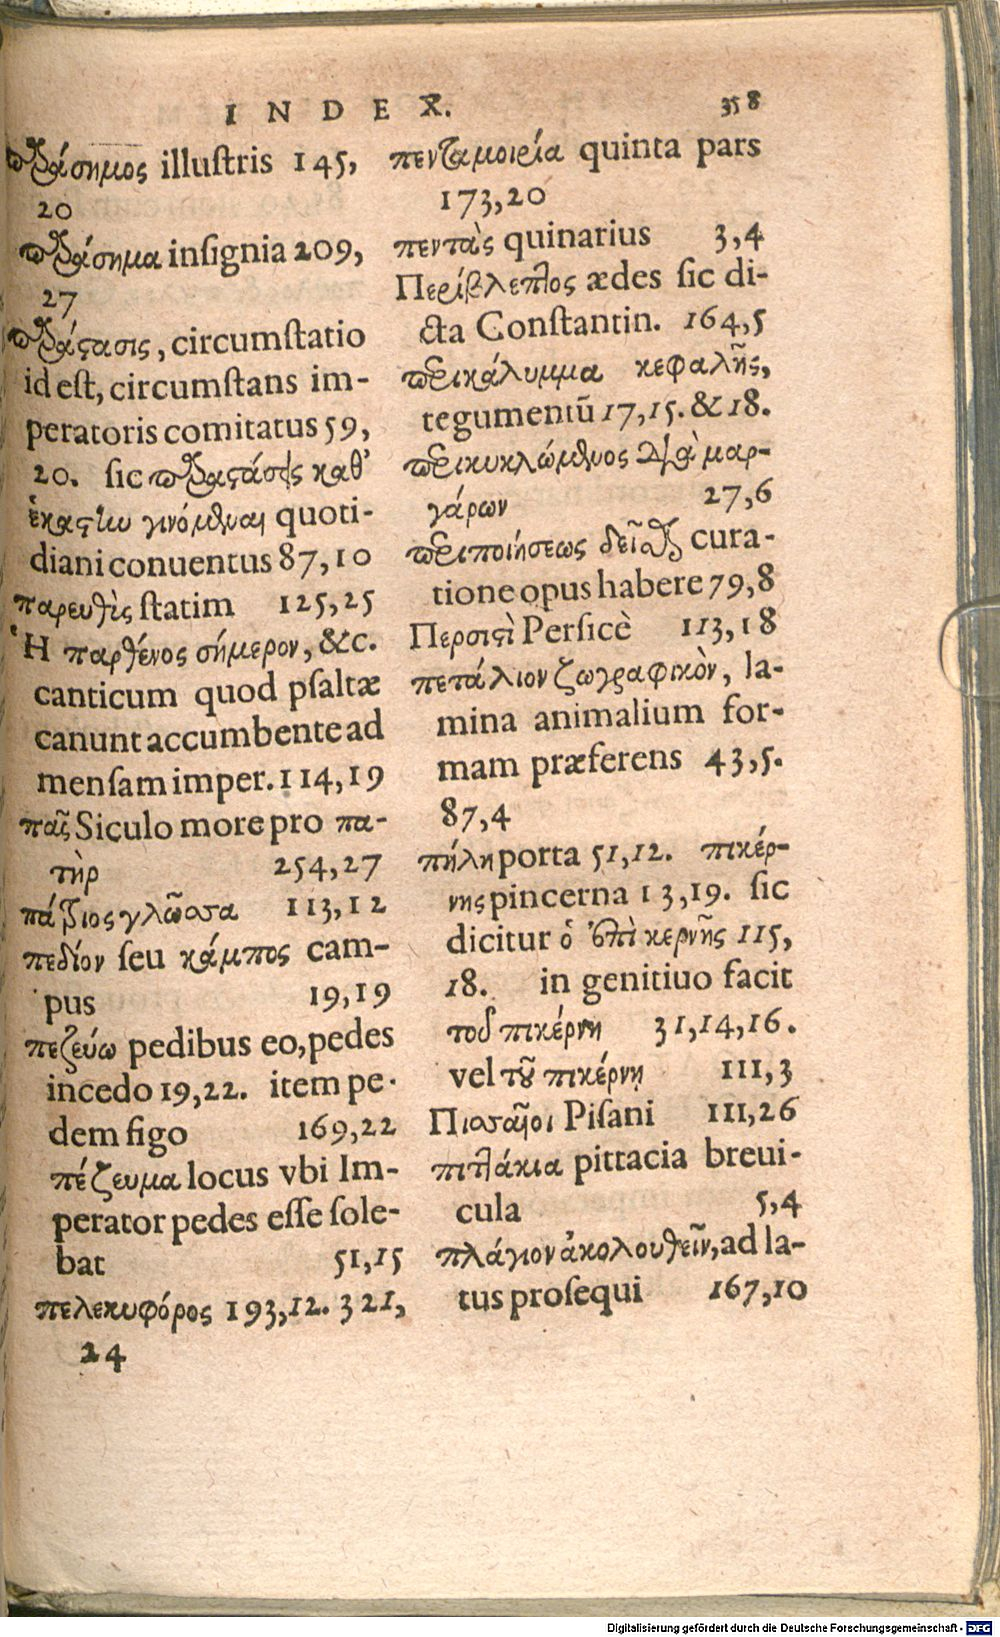 INDEX. 358
παράσημος illuſtris 145,
20
παράσημα inſignia 209,
27
παράςασις, circumſtatio
id eſt, circumſtans im-
peratoris comitatus 59,
20. ſic παραςάσεις καθ'
ἑκάςην γινόμεναι quoti-
diani conuentus 87,10
παρευθὺς ſtatim 125,25
Ἡ παρθένος σήμερον, &c.
canticum quod pſaltæ
canunt accumbente ad
menſam imper. 114,19
πας Siculo more pro πα-
τὴρ 254,27
πάτριος γλῶσσα 113,12
πεδίον ſeu κάμπος cam-
pus 19,19
πεζεύω pedibus eo, pedes
incedo 19,22. item pe-
dem figo 169,22
πέζευμα locus vbi Im-
perator pedes eſſe ſole-
bat 51,15
πελεκυφόρος 193,12. 321,
24
πενταμοιρία quinta pars
173,20
πεντὰς quinarius 3,4
Περίβλεπτος ædes ſic di-
cta Conſtantin. 164,5
περικάλυμμα κεφαλῆς,
tegumentũ 17,15. & 18.
περικυκλώμενος διὰ μαρ-
γάρων 27,6
περιποιήσεως δεῖσθαι cura-
tione opus habere 79,8
Περσιςὶ Perſicè 113,18
πετάλιον ζωγραφικὸν, la-
mina animalium for-
mam præferens 43,5.
87,4
πήλη porta 51,12. πικέρ-
νης pincerna 13,19. ſic
dicitur ὁ ἐπὶ κερνῆς 115,
18. in genitiuo facit
τοῦ πικέρνη 31,14,16.
vel τοῦ πικέρνη 111,3
Πισσαῖοι Piſani 111,26
πιττάκια pittacia breui-
cula 5,4
πλάγιον ἀκολουθεῖν, ad la-
tus proſequi 167,10
Digitalisierung gefördert durch die Deutsche Forschungsgemeinschaft - DFG